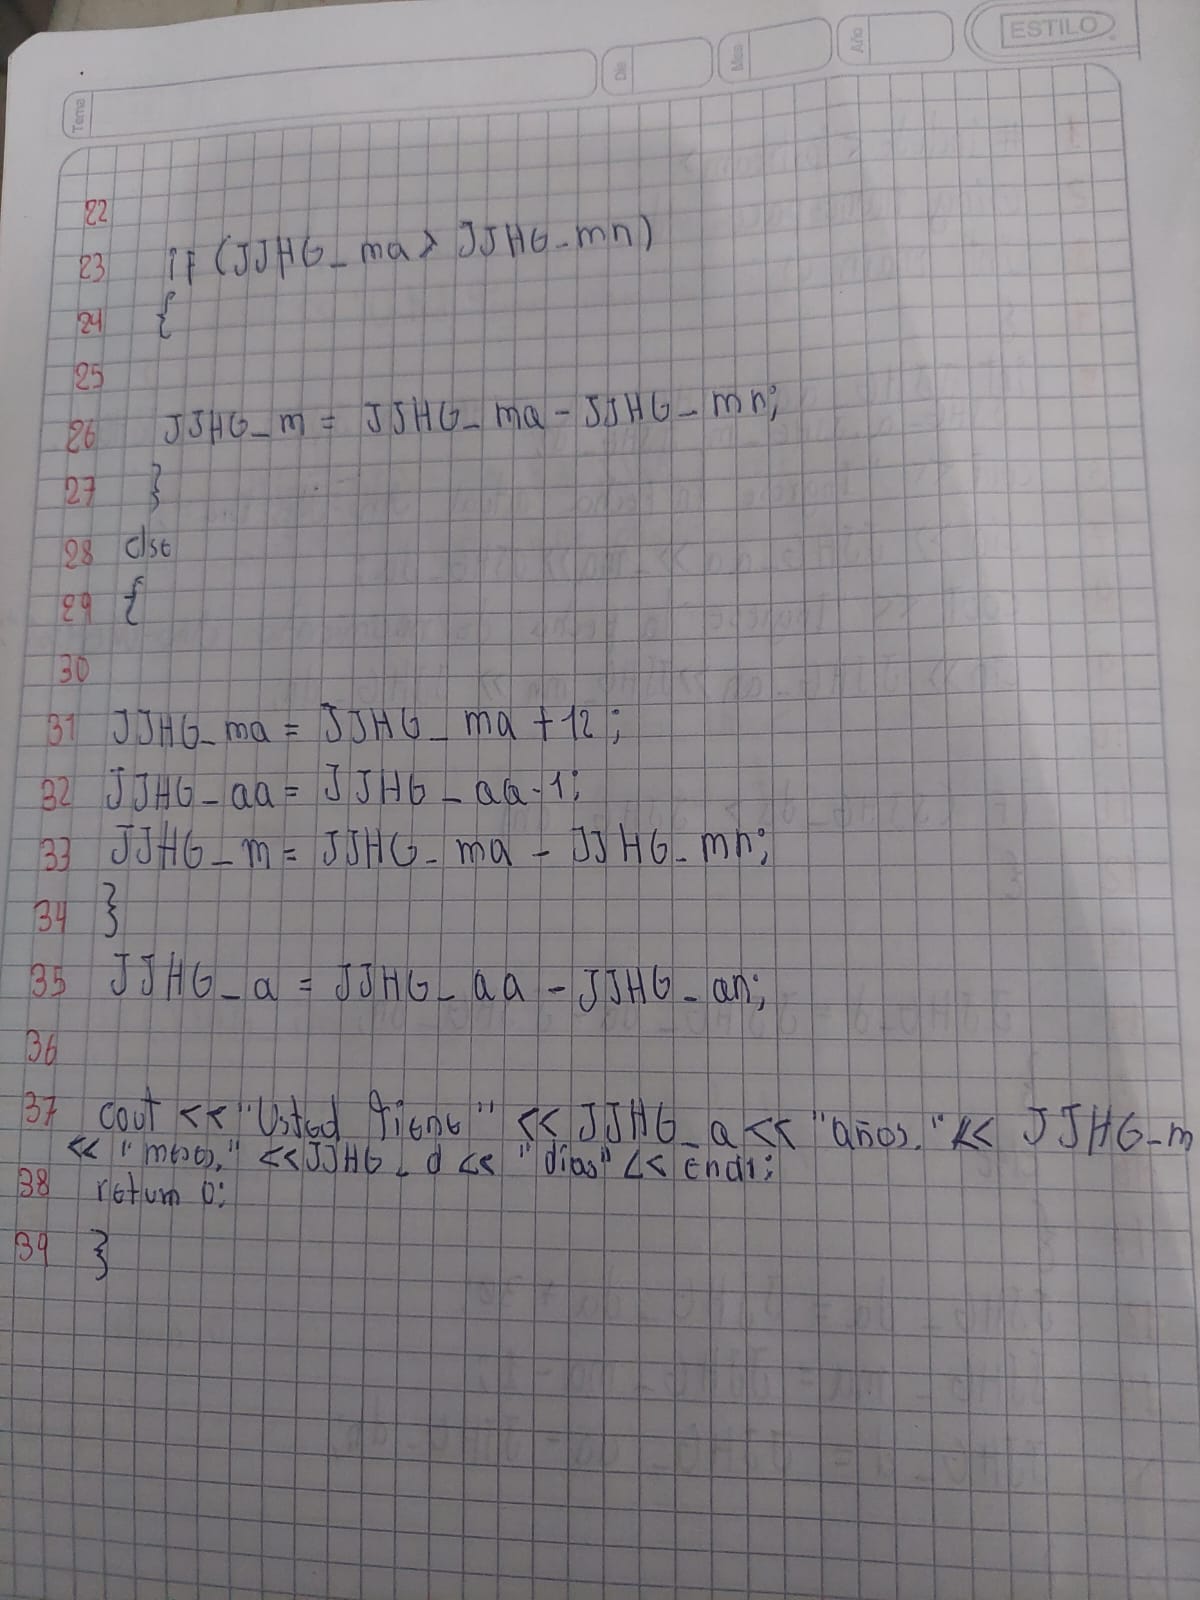 Tema
Dia
Mes
Año
ESTILO
22
23 if (JJHG_ma > JJHG_mn)
24 {
25
26 JJHG_m = JJHG_ma - JJHG_mn;
27 }
28 else
29 {
30
31 JJHG_ma = JJHG_ma + 12;
32 JJHG_aa = JJHG_aa - 1;
33 JJHG_m = JJHG_ma - JJHG_mn;
34 }
35 JJHG_a = JJHG_aa - JJHG_an;
36
37 cout << "Usted tiene" << JJHG_a << "años." << JJHG_m
<< "meses," << JJHG_d << "dias" << endl;
38 return 0;
39 }